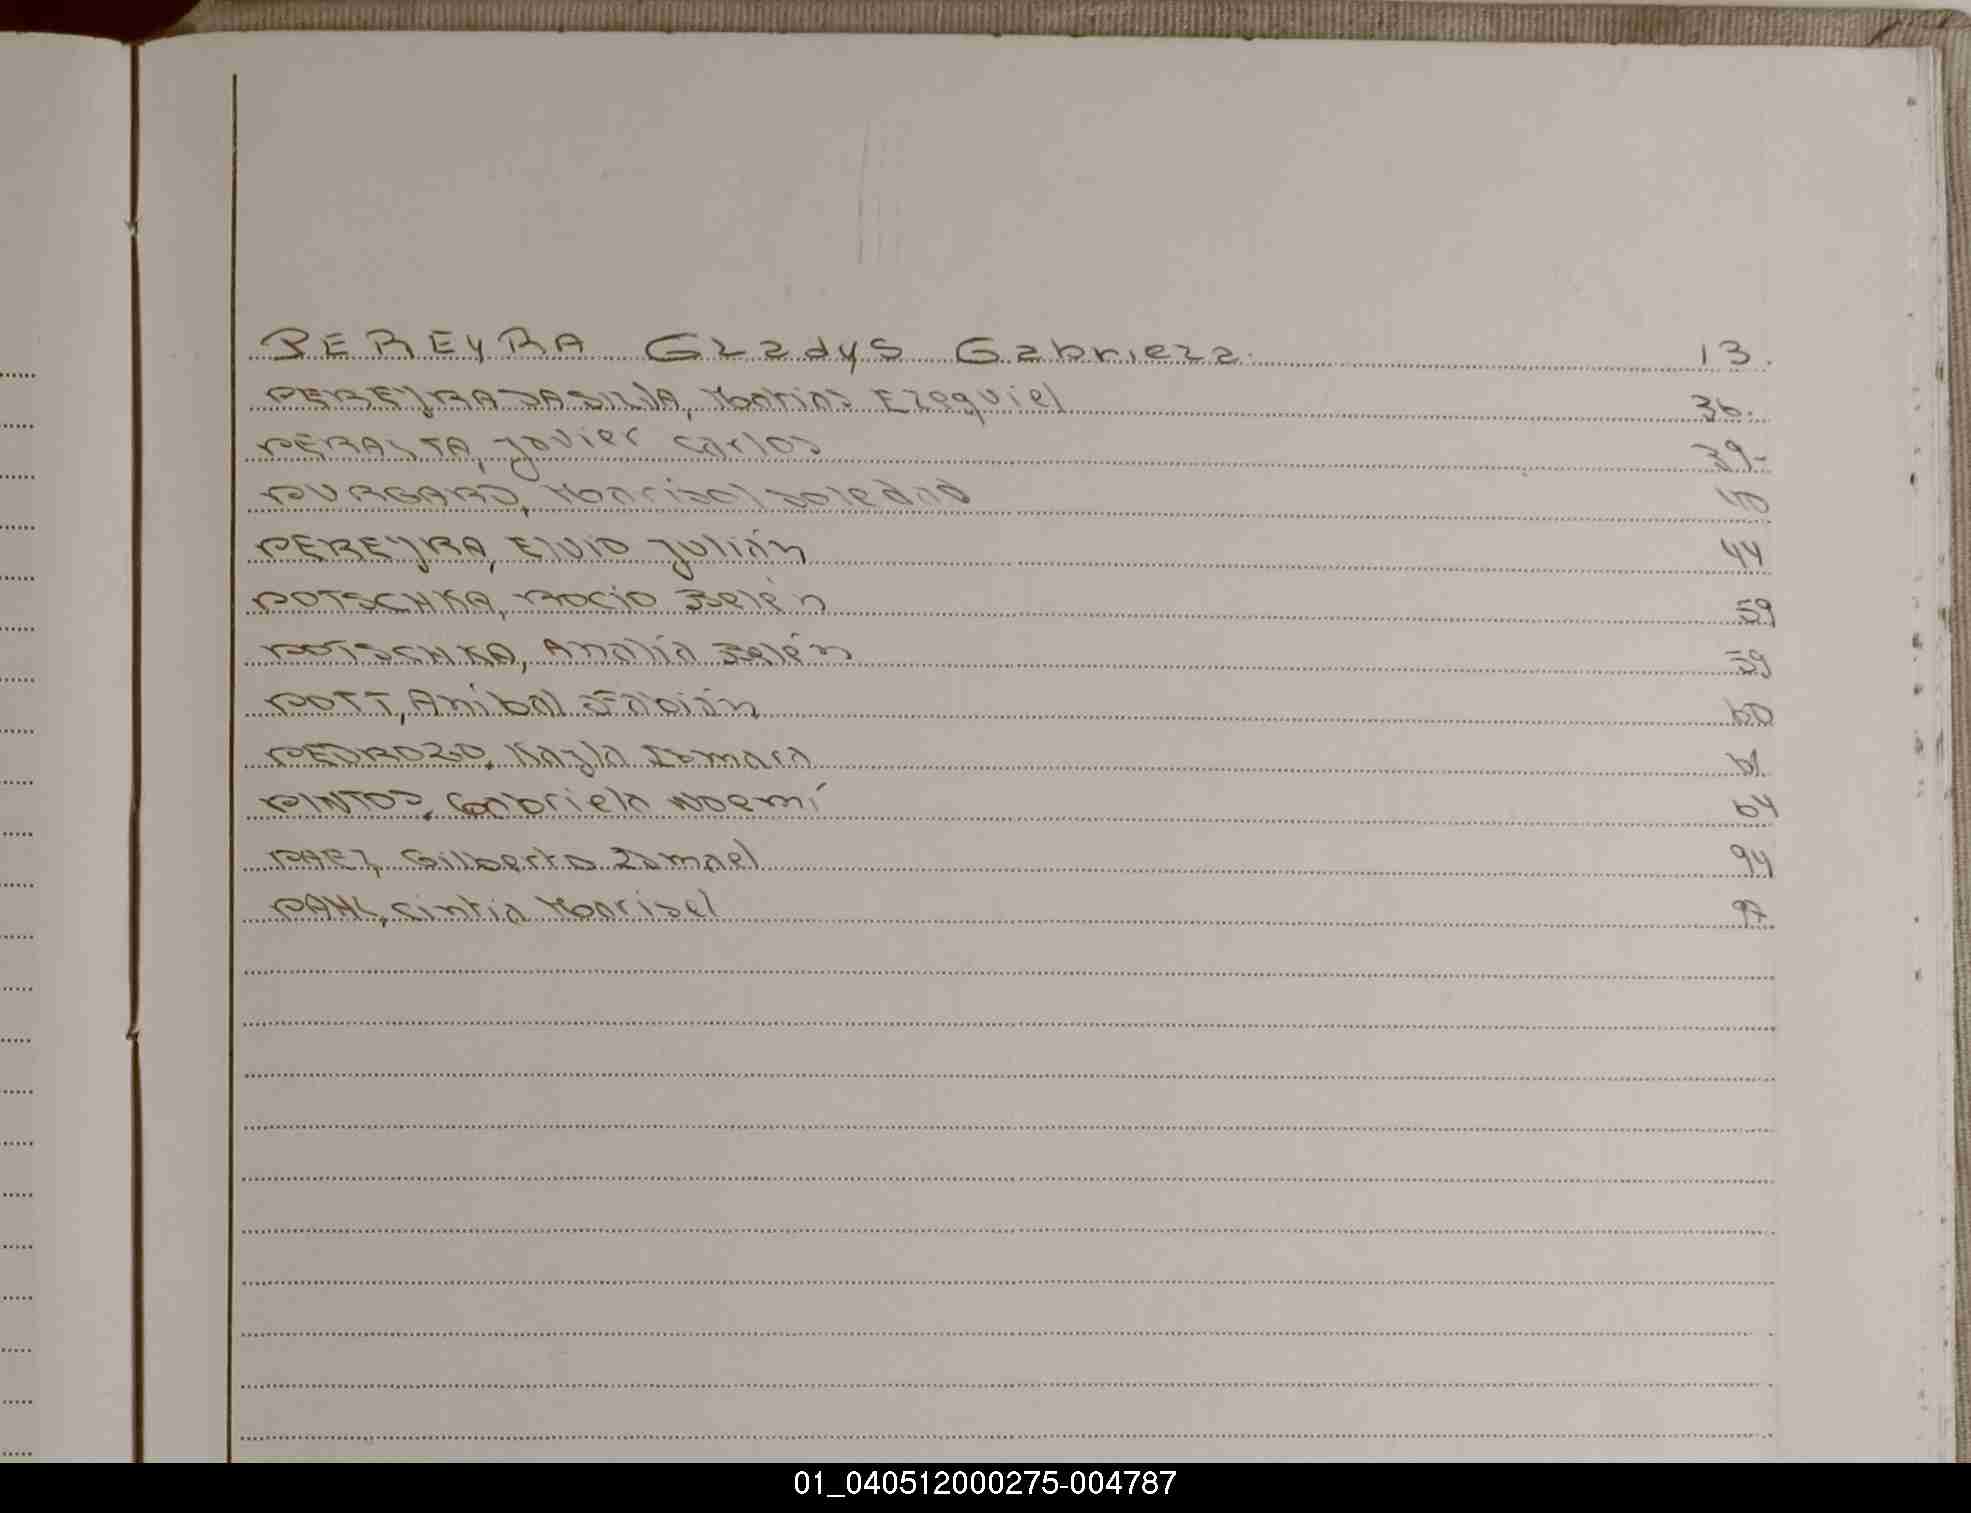 PEREYRA Gladys Gabriela. 13.
PEREYRA DA SILVA, Marias Ezequiel 36.
PERALTA, Javier Carlos 39-
PURGARD, Marisol Soledad 40
PEREYRA, Elvio Julián 44
POTSCHKA, Rocio Belén 59
POTSCHKA, Analía Belén 59
POTT, Anibal Fabián 60
PEDROZO, Kayla Ismara 61
PINTOS, Gabriela Noemí 64
PAEZ, Gilberto Ismael 94
PAHL, Cintia Marisel 97
01_040512000275-004787